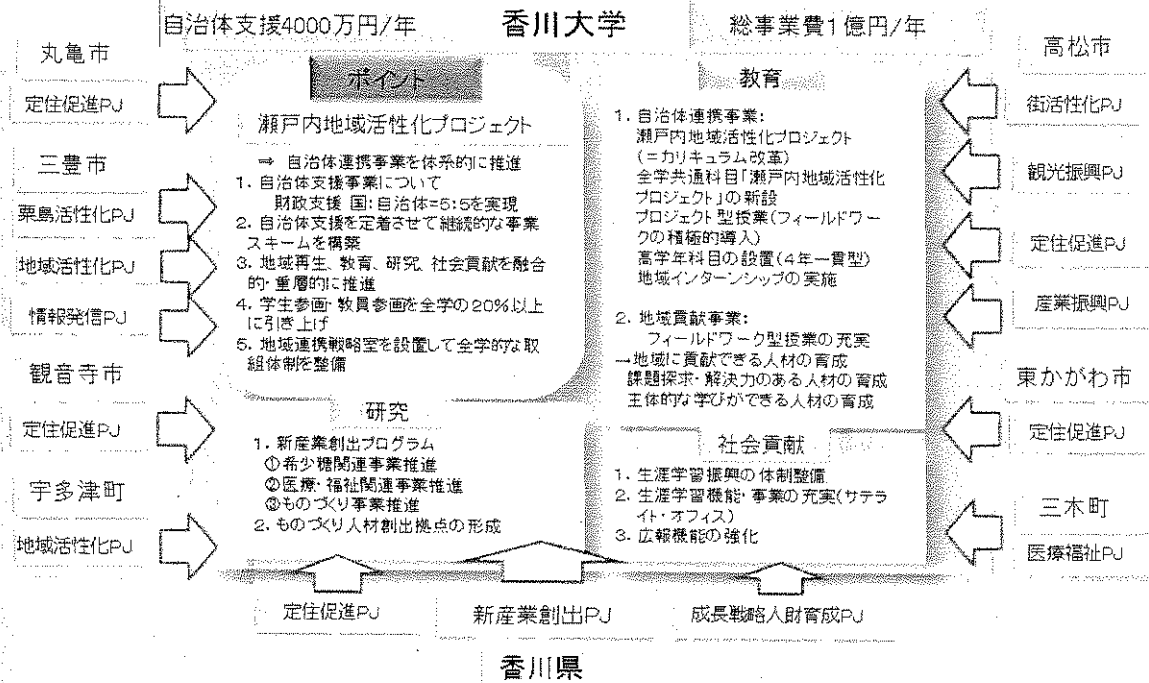 自治体支援4000万円/年
香川大学
総事業費1億円/年
丸亀市
定住促進PJ
三豊市
粟島活性化PJ
地域活性化PJ
情報発信PJ
観音寺市
定住促進PJ
宇多津町
地域活性化PJ
ポイント
瀬戸内地域活性化プロジェクト
⇒ 自治体連携事業を体系的に推進
1. 自治体支援事業について
財政支援 国:自治体=5:5を実現
2. 自治体支援を定着させて継続的な事業
スキームを構築
3. 地域再生、教育、研究、社会貢献を融合
的・重層的に推進
4. 学生参画・教員参画を全学の20%以上
に引き上げ
5. 地域連携戦略室を設置して全学的な取
組体制を整備
研究
1. 新産業創出プログラム
①希少糖関連事業推進
②医療・福祉関連事業推進
③ものづくり事業推進
2. ものづくり人材創出拠点の形成
教育
1. 自治体連携事業:
瀬戸内地域活性化プロジェクト
(=カリキュラム改革)
全学共通科目「瀬戸内地域活性化
プロジェクト」の新設
プロジェクト型授業(フィールドワー
クの積極的導入)
高学年科目の設置(4年一貫型)
地域インターンシップの実施
2. 地域貢献事業:
フィールドワーク型授業の充実
→地域に貢献できる人材の育成
課題探求・解決力のある人材の育成
主体的な学びができる人材の育成
社会貢献
1. 生涯学習振興の体制整備
2. 生涯学習機能・事業の充実(サテラ
イト・オフィス)
3. 広報機能の強化
高松市
街活性化PJ
観光振興PJ
定住促進PJ
産業振興PJ
東かがわ市
定住促進PJ
三木町
医療福祉PJ
定住促進PJ
新産業創出PJ
成長戦略人財育成PJ
香川県